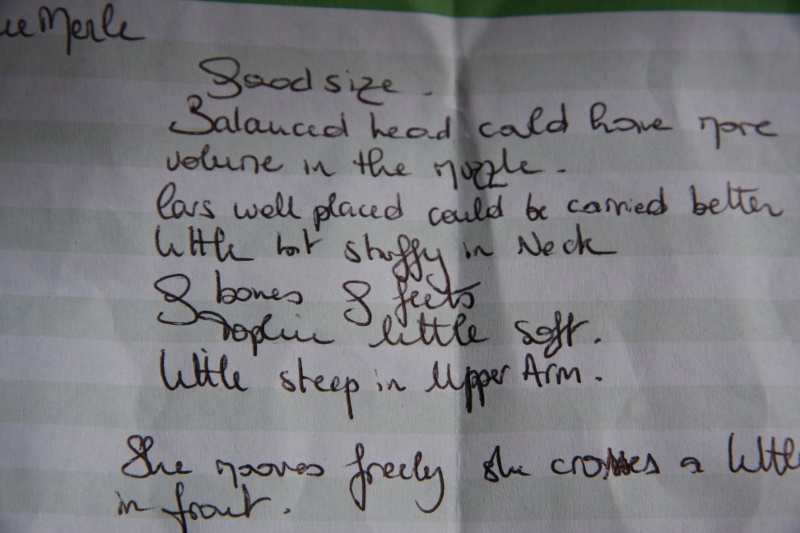 ue Merle
Good size.
Balanced head cald have more
volume in the muzzle.
Ears well placed could be carried better
little bit stuffy in Neck
G bones G feets
Toplin little soft.
little steep in Upper Arm.
She mooves freely she crosses a little
in front.